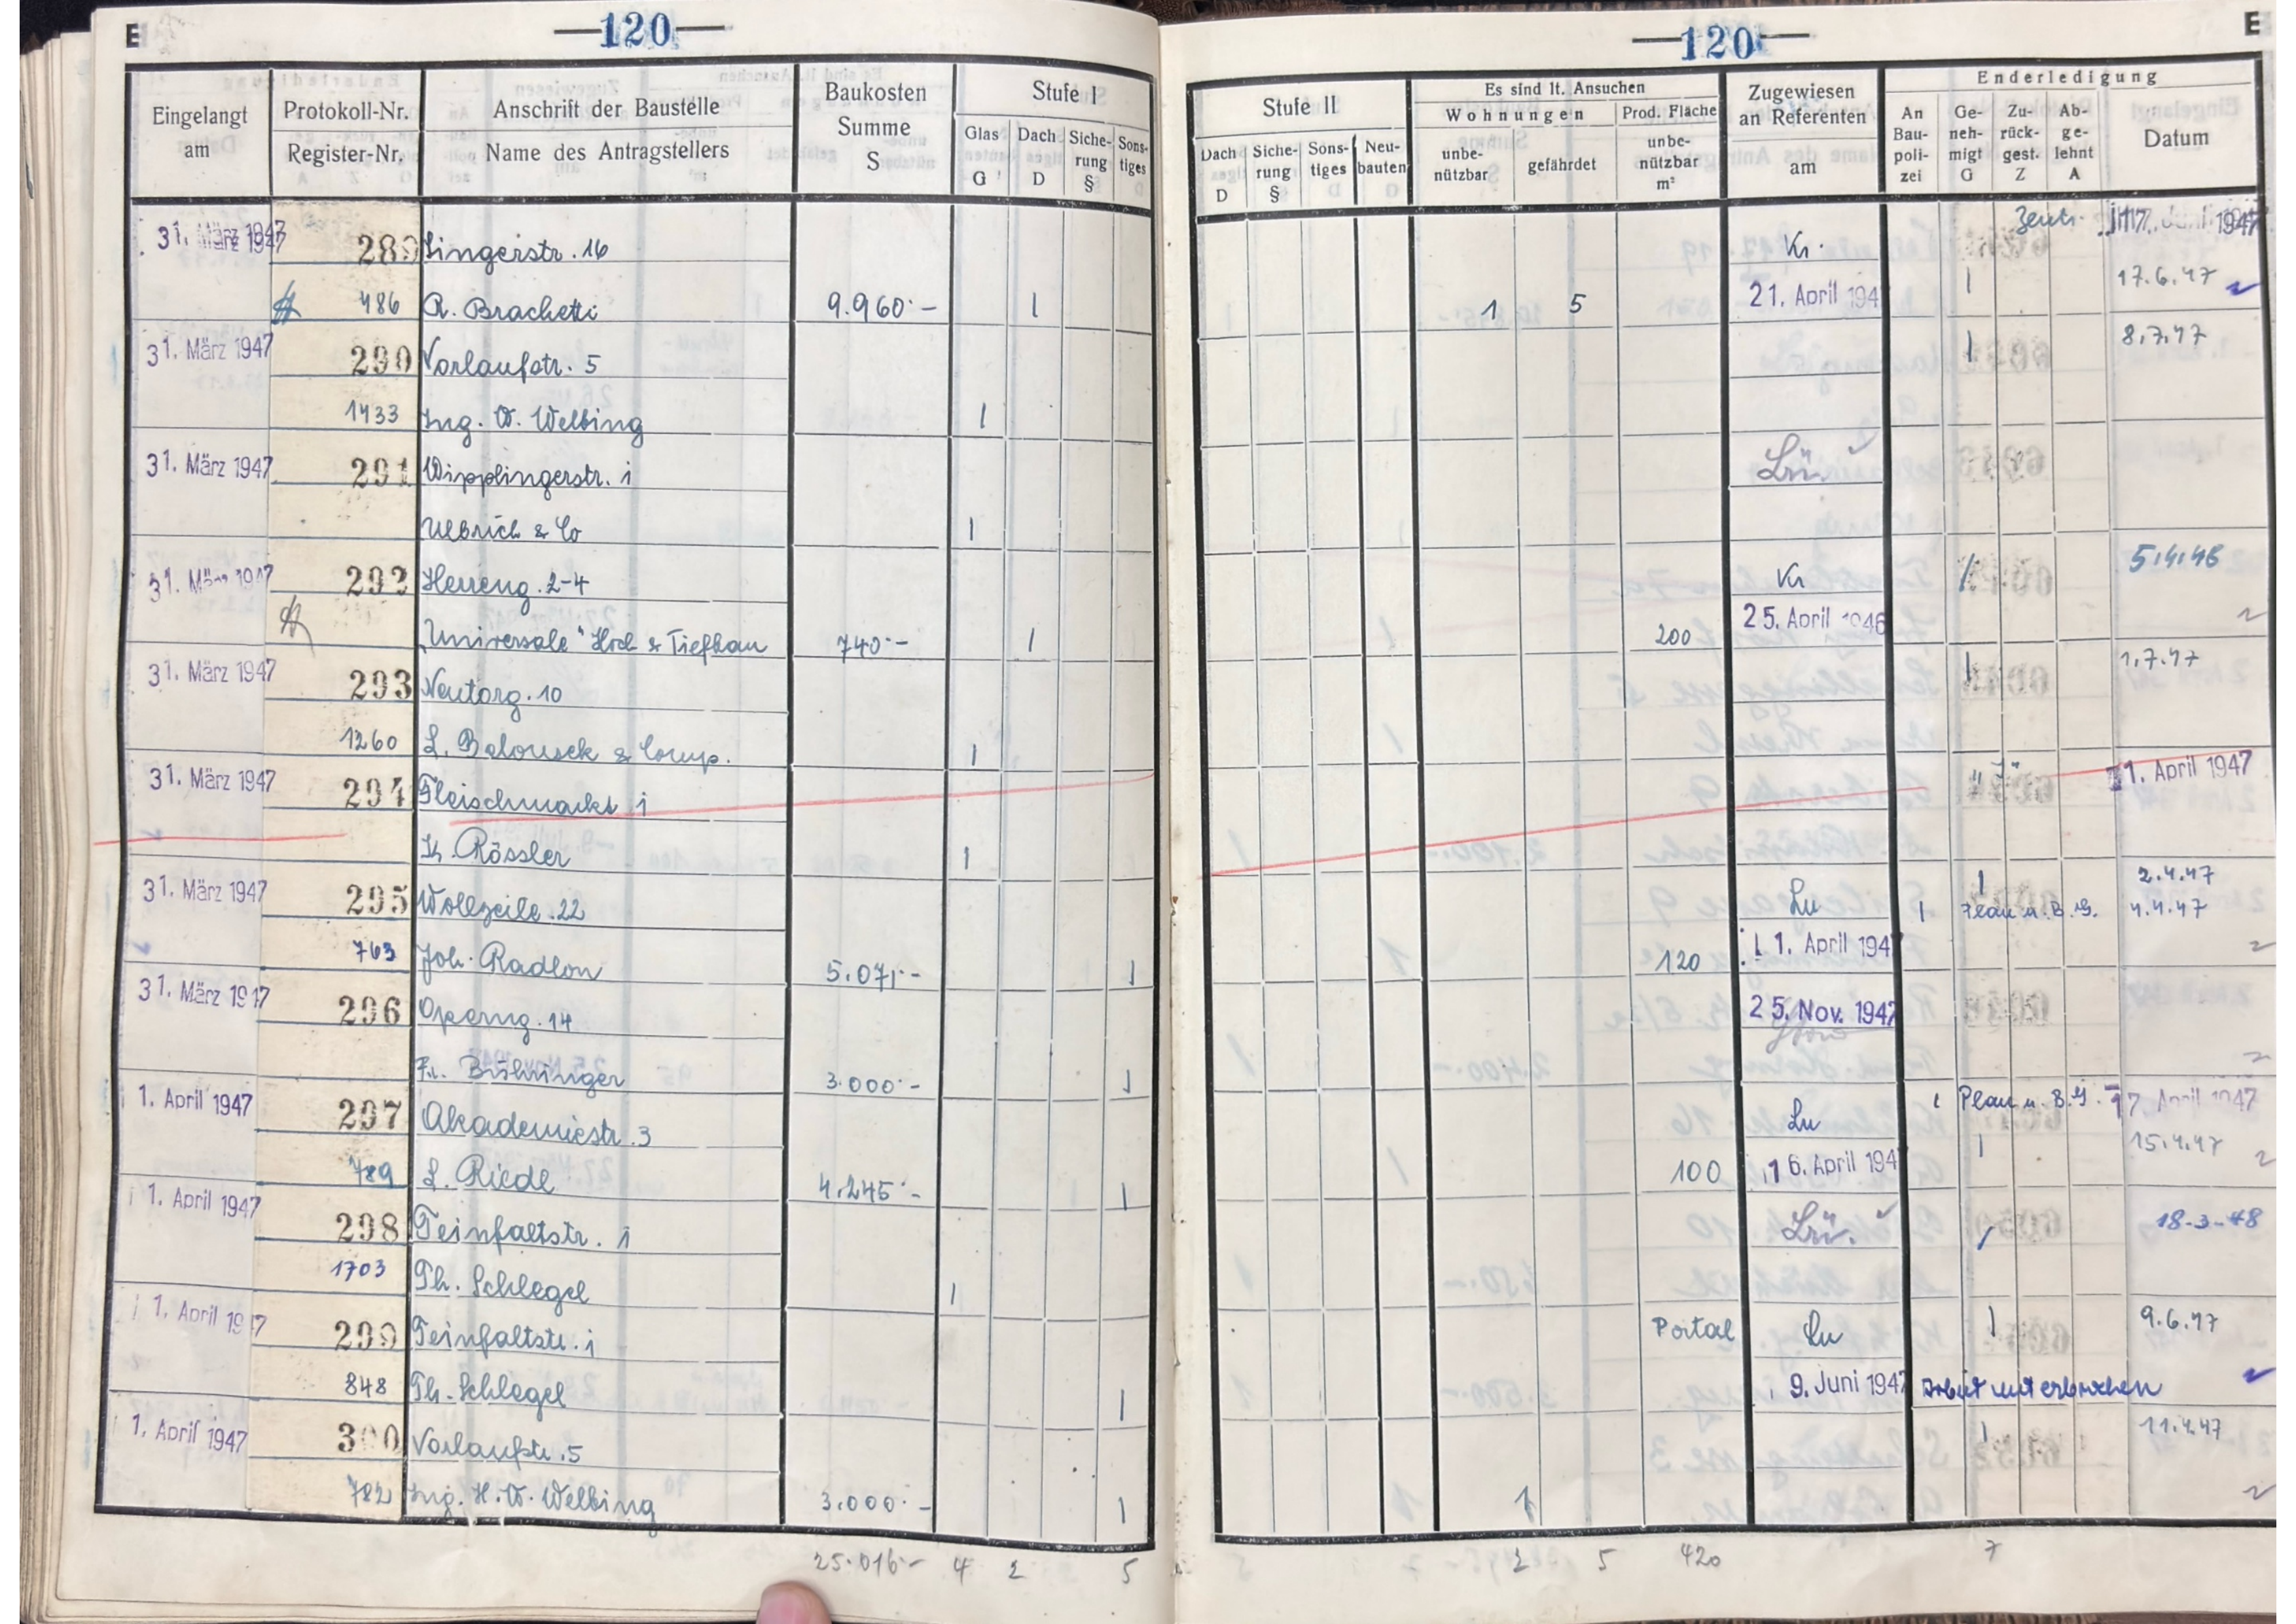 E —120— —120— E
Eingelangt am
Protokoll-Nr.
Register-Nr.
Anschrift der Baustelle
Name des Antragstellers
Baukosten Summe S
Stufe I
Glas G
Dach D
Siche-rung §
Sons-tiges
Stufe II
Dach D
Siche-rung §
Sons-tiges
Neu-bauten
Es sind lt. Ansuchen
Wohnungen
unbe-nützbar
gefährdet
Prod. Fläche
unbe-nützbar m²
Zugewiesen an Referenten am
Enderledigung
An Bau-poli-zei
Ge-neh-migt G
Zu-rück-gest. Z
Ab-ge-lehnt A
Datum
31. März 1947 289 Singerstr. 16 Kr. Zentr. 17. Juni 1947
486 R. Brachetti 9.960.- 1 1 5 21. April 194 1 17.6.47
31. März 1947 290 Vorlaufstr. 5 1 8.7.47
1433 Ing. W. Welbing 1
31. März 1947 291 Wipplingerstr. 1 Lrü.
Ulbrich & Co 1
31. März 1947 292 Herreng. 2-4 Kr 1 5.4.46
"Universale" Hoch & Tiefbau 740.- 1 200 25. April 1946
31. März 1947 293 Neutorg. 10 1 1.7.47
1260 L. Belousek & Comp. 1
31. März 1947 294 Fleischmarkt 1 1. April 1947
K. Rössler 1
31. März 1947 295 Wollzeile 22 Lu 1 2.4.47
1 Plan u. B.G. 4.4.47
763 Joh. Radlon 5.071.- 1 120 1 1. April 194
31. März 1947 296 Operng. 14 25. Nov. 1947
Fr. Bühringer 3.000.- 1
1. April 1947 297 Akademiestr. 3 Lu 1 Plan u. B.G. 17. April 1947
789 L. Riedl 4.245.- 1 100 16. April 194 1 15.4.47
1. April 1947 298 Teinfaltstr. 1 Lrü. 1 18-3-48
1703 Th. Schlegel 1
1. April 1947 299 Teinfaltstr. 1 Portal Lu 1 9.6.47
848 Th. Schlegel 1 9. Juni 1947 Arbeit unterbrochen
1. April 1947 300 Vorlaufstr. 5 1 11.4.47
782 Ing. H. W. Welbing 3.000.- 1 1
25.016.- 4 2 5 2 5 420 7